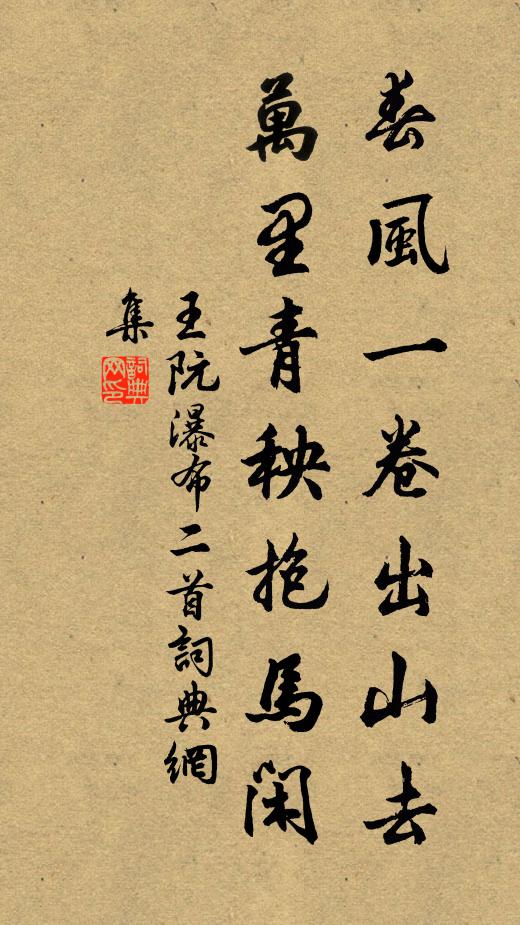 春風一卷出山去
萬里青秧抱馬閑
王阮瀑布二首詞典網
集
詞典
网印